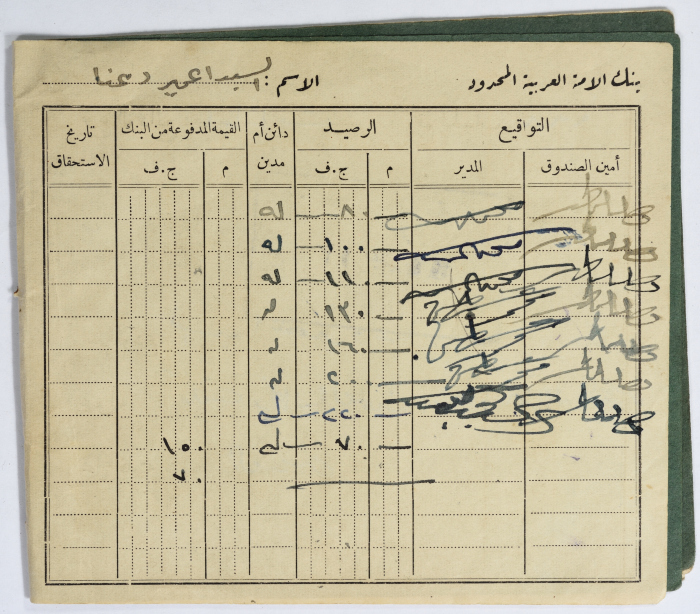 بنك الامة العربية المحدود الاسم : السيد
التواقيع الرصيد دائن أم مدين القيمة المدفوعة من البنك تاريخ الاستحقاق
أمين الصندوق المدير م ج.ف م ج.ف
٨٠ له
١٠٠ له
١١٠ له
١٣٠ له
١٦٠ له
٢٠٠ له
٢٢٠ له
٧٠ له ١٥٠
٧٠